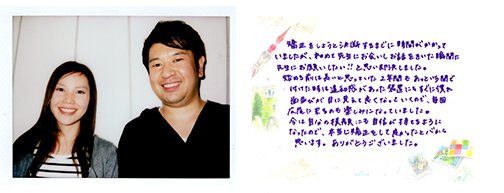 矯正をしようと決断するまでに時間がかかって
いましたが、初めて先生にお会いしお話をきいた瞬間に
先生にお願いしたい!!と思い即決しました。
始める前は長いと思っていた2年間もあっという間で
付けた時は違和感があった装置にもすぐに慣れ
歯並びが目に見えて良くなっていくので、毎回
広尾に来るのを楽しみになっていました。
今は自分の横顔にも自信が持てるように
なったので、本当に矯正をして良かったと心から
思います。ありがとうございました。